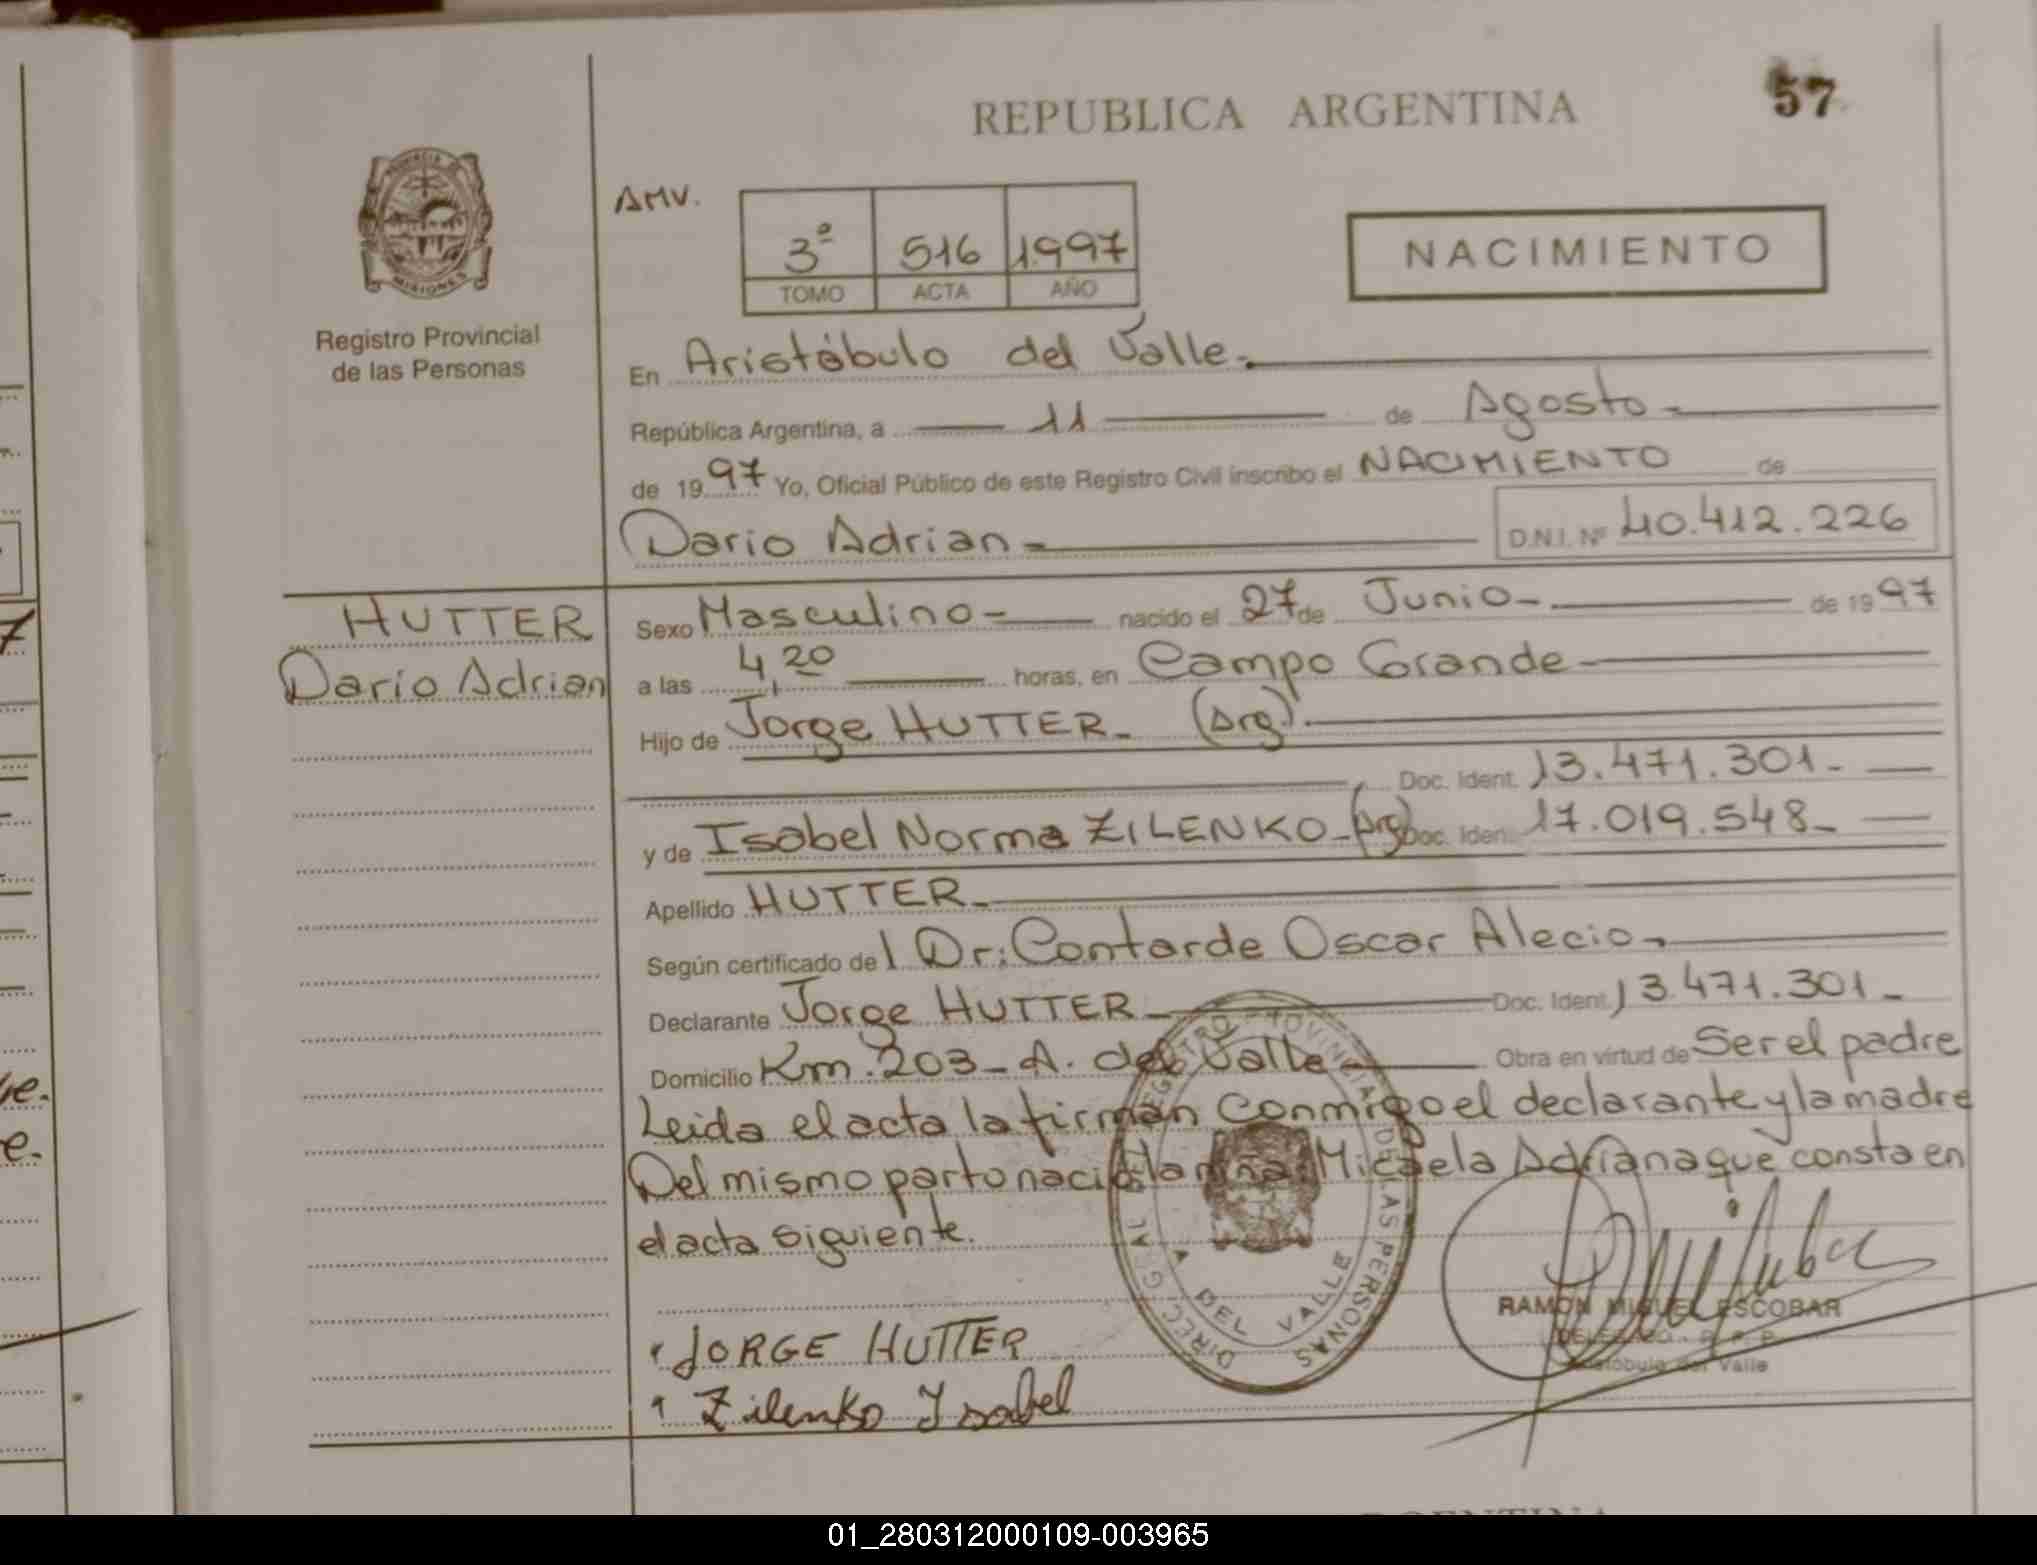 REPUBLICA ARGENTINA
57
PROVINCIA DE
MISIONES
Registro Provincial
de las Personas
AMV.
3º 516 1997
TOMO ACTA AÑO
NACIMIENTO
En Aristóbulo del Valle.
República Argentina, a 11 de Agosto
de 1997 Yo, Oficial Público de este Registro Civil inscribo el NACIMIENTO de
Dario Adrian D.N.I. Nº 40.412.226
HUTTER
Dario Adrian
Sexo Masculino nacido el 27 de Junio de 1997
a las 4,20 horas, en Campo Grande
Hijo de Jorge HUTTER (Arg).
Doc. Ident. 13.471.301
y de Isabel Norma ZILENKO (Arg) Doc. Iden. 17.019.548
Apellido HUTTER
Según certificado del Dr: Contarde Oscar Alecio
Declarante Jorge HUTTER Doc. Ident. 13.471.301
Domicilio Km. 203 - A. del Valle Obra en virtud de Ser el padre
Leida el acta la firman conmigo el declarante y la madre
Del mismo parto nació la niña: Micaela Adriana que consta en
el acta siguiente.
DIREC. GRAL. DEL REGISTRO PROVINCIAL DE LAS PERSONAS
A DEL VALLE
RAMON MIGUEL ESCOBAR
DELEGADO R. P. P.
Aristóbulo del Valle
JORGE HUTTER
Zilenko Isabel
01_280312000109-003965